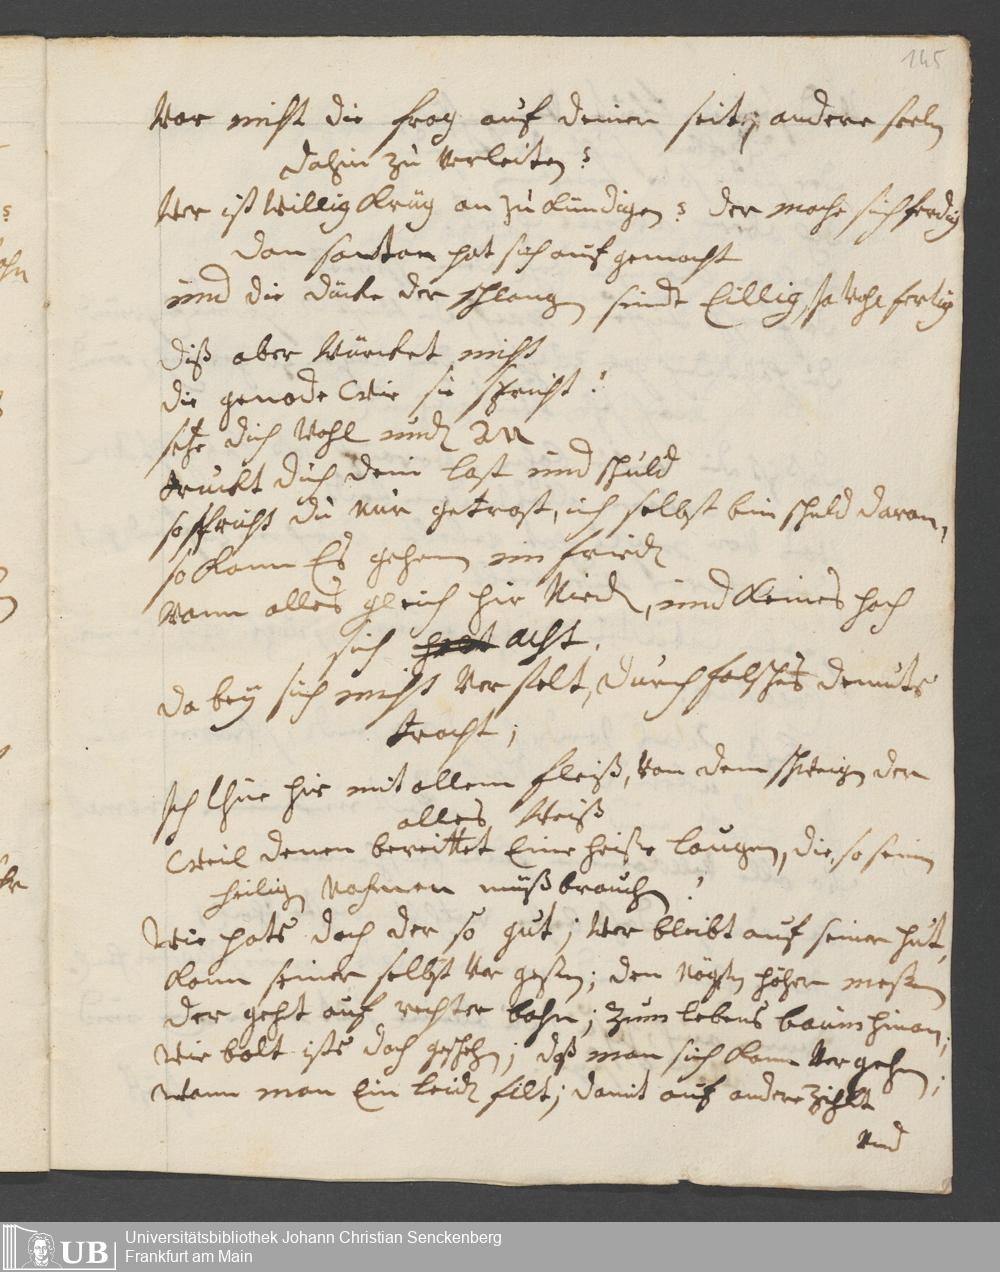 145
War nicht die frag auf deiner seit, andere seeln
dahin zu verleiten?
Wer ist Willig Krüg an zu kündigen? der mache sich ferdig
dan santan hat sich auf gemacht
und die dücke der schlangen sindt Eillig, so wohl fertig
diß aber würcket nicht
die genade wie sie spricht!
sehe dich wohl
truckt dich dein last und schuld
so sprich du nur getrost, ich selbst bin schuld daran,
so kann Es gehen im fried
wann alles gleich hir Nied, und keines hoch
sich acht.
da beÿ sich nicht verstelt, durch falsches demuts
tracht;
Ich thue hir mit allem fleiß, von dem schweigen der
alles Weiß
Weil denen bereittet Eine heiße laugen, die so sein
heilig Nahmen mißbrauchen!
Wie hats doch der so gut; Wer bleibt auf seiner hut,
kann seiner selbst ver geßen; den Nägsten höher meßen
der geht auf rechter bahn; zum lebens baum hinan;
wie balt ists doch geschehn; daß man sich kann vergehen;
wann man Ein leid filt; damit auf andere zihlt
Und
Universitätsbibliothek Johann Christian Senckenberg
Frankfurt am Main
UB